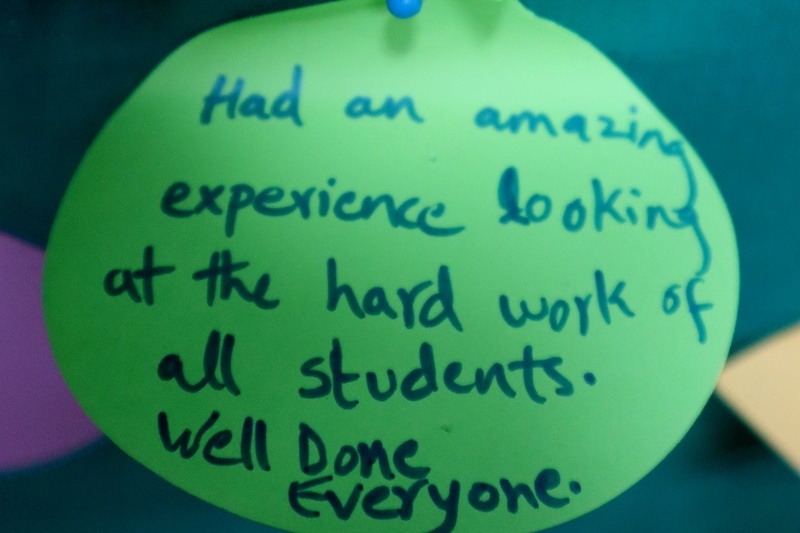 Had an amazing
experience looking
at the hard work of
all students.
Well Done
Everyone.